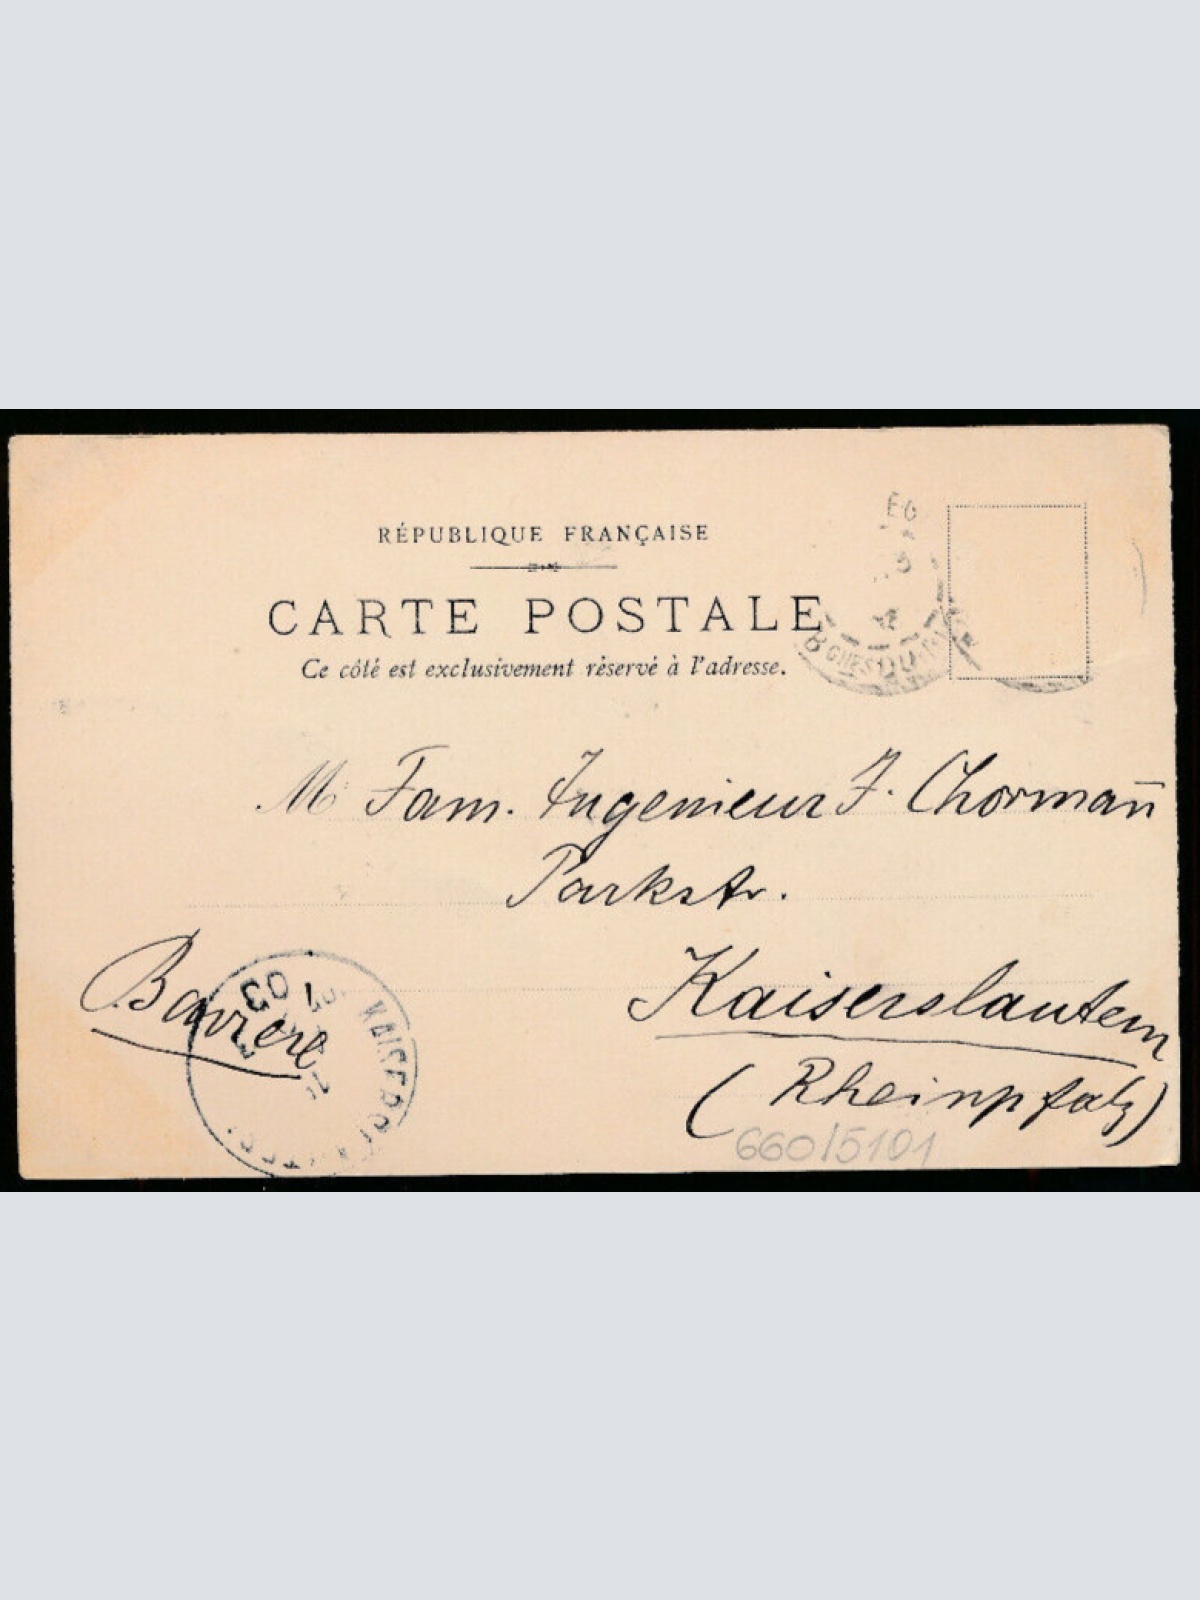 RÉPUBLIQUE FRANÇAISE
CARTE POSTALE
Ce côté est exclusivement réservé à l'adresse.
BCHES DU
M Fam. Ingenieur J. Chormañ
Parkstr.
Kaiserslautern
(Rheinpfalz)
Baviere
03
660/5101